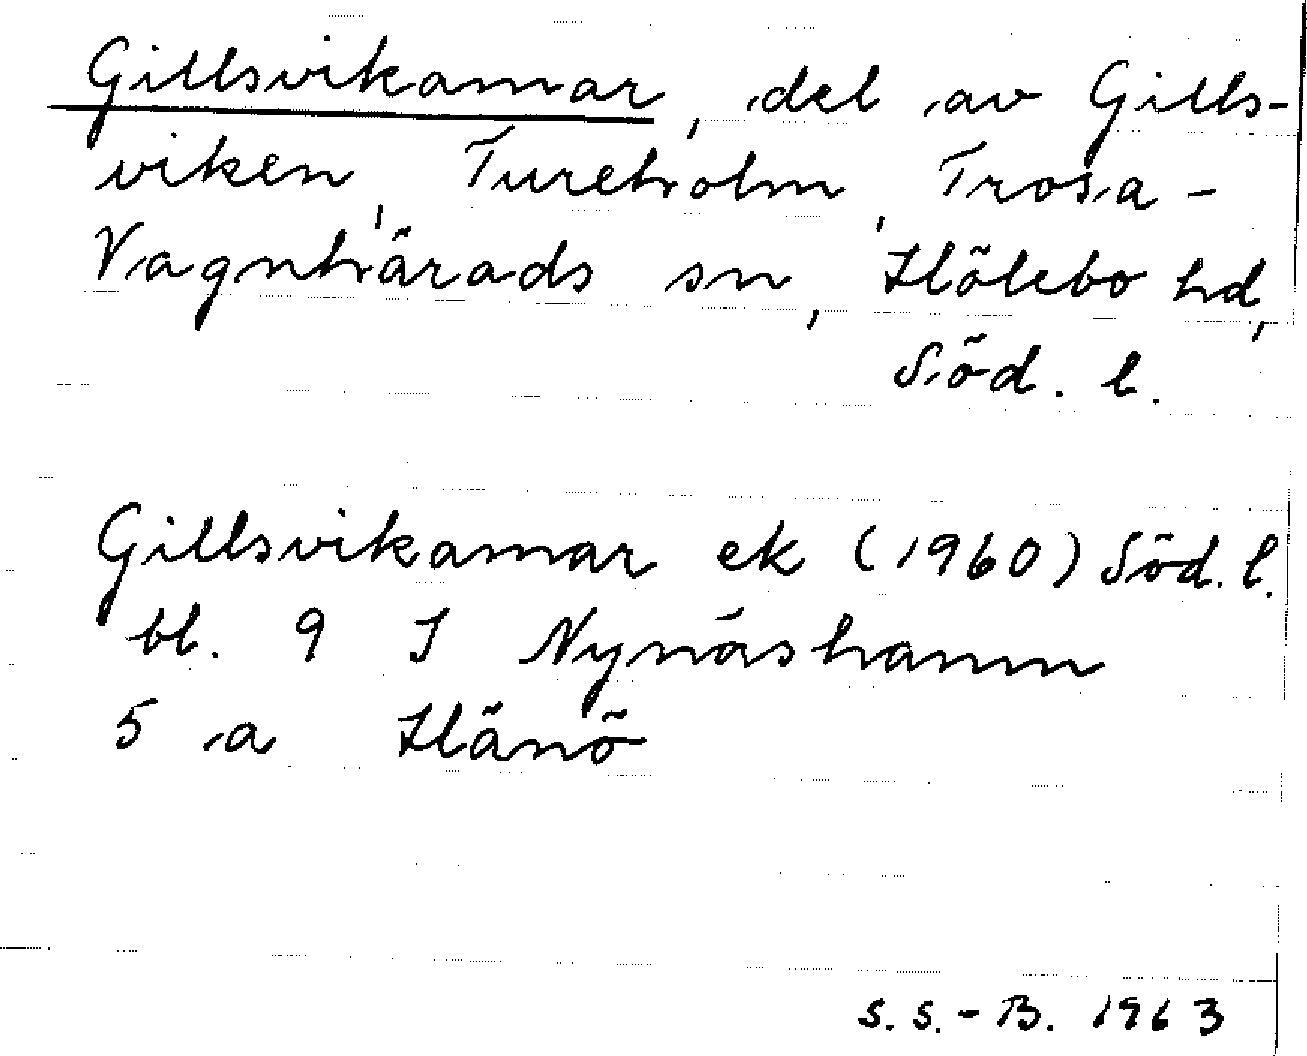 Gillsvikamar, del av Gills-
viken, Tureholm, Trosa-
Vagnhärads sn, Hölebo hd,
Söd. l.
Gillsvikamar ek (1960) Söd. l.
bl. 9 I Nynäshamn
5 a Hänö
S. S.-B. 1963